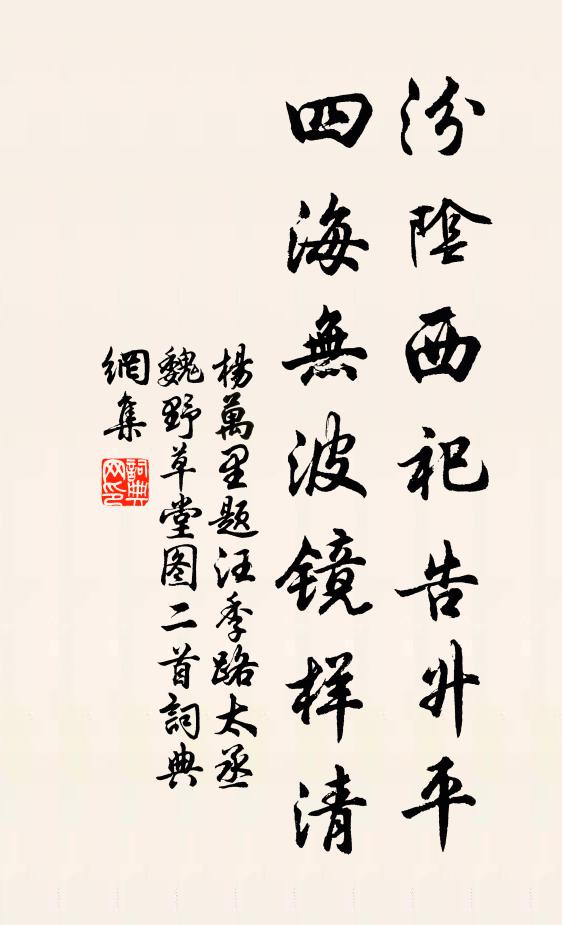 汾陰西祀告升平
四海無波镜样清
楊萬里题汪季路太丞
魏野草堂图二首詞典
網集
詞典网印